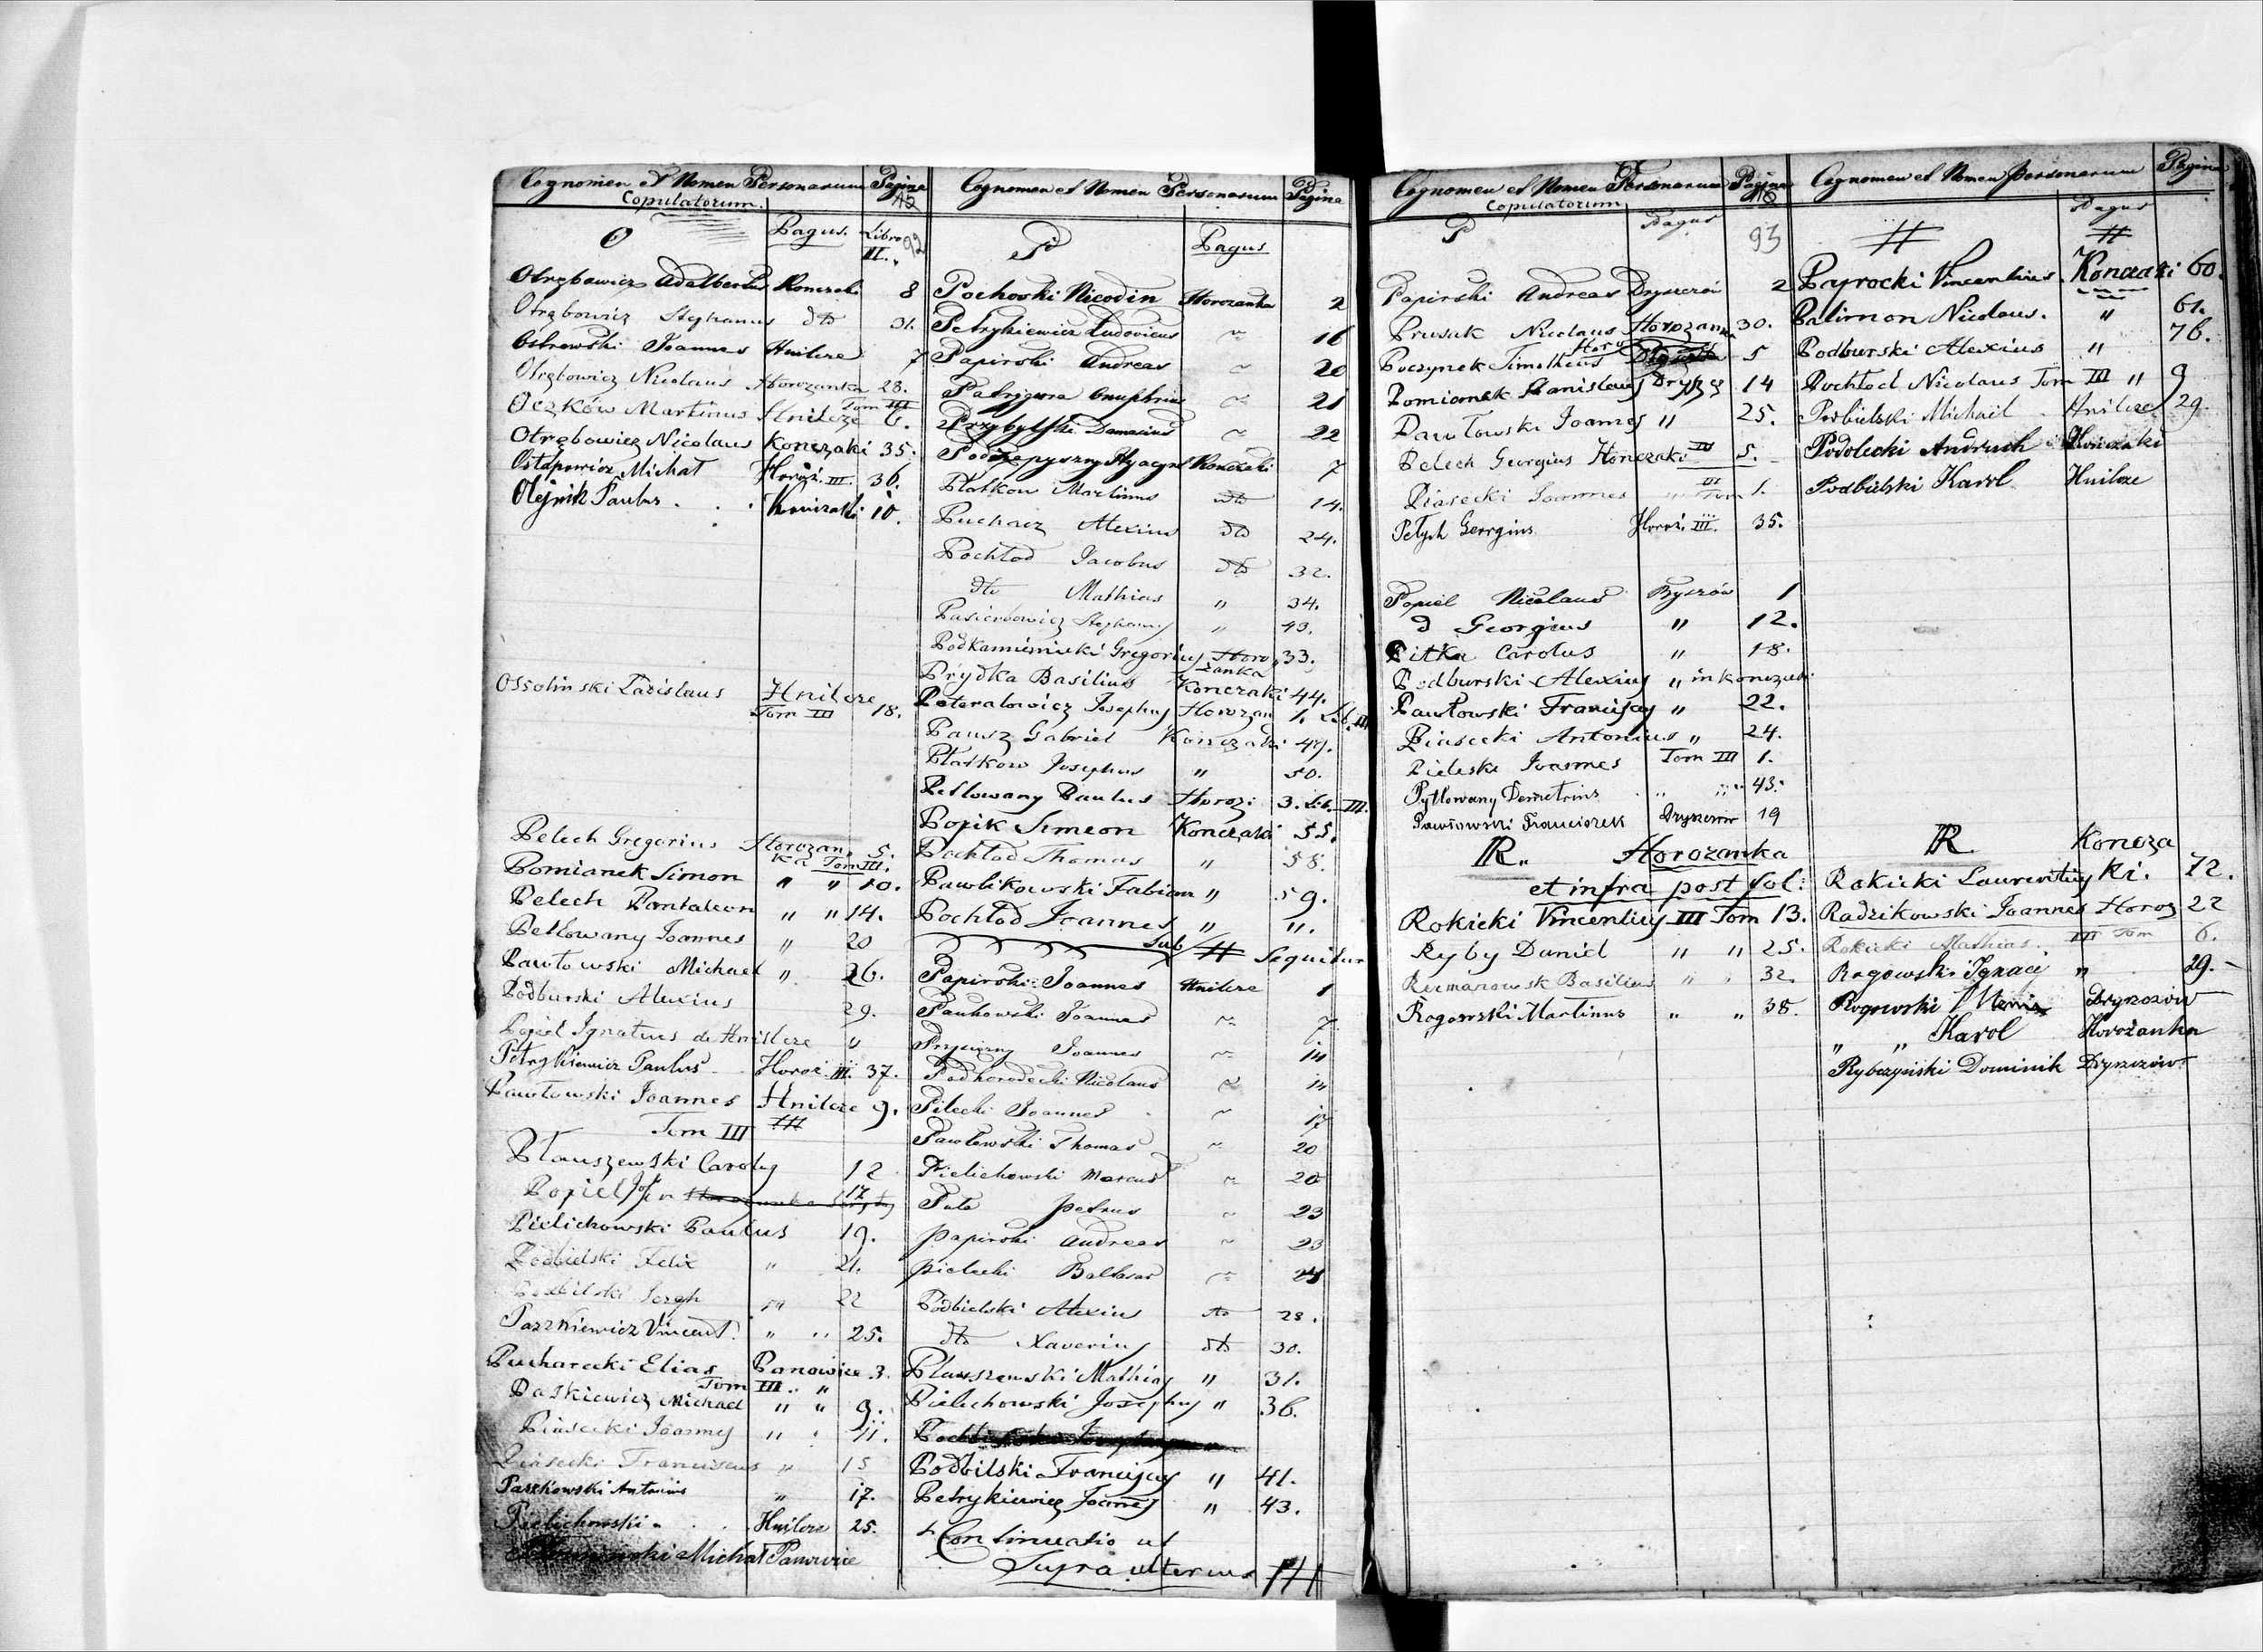 Cognomen et Nomen Personarum Pagina
Copulatorum.
O Pagus. Libro II. 92
Otrębowicz Adalbertus Konczaki 8
Otrębowicz Stephanus dto 31.
Ostrowski Joannes Hnilcze 7
Otrębowicz Nicolaus Horozanka 28.
Oczków Martinus Hnilcze Tom III 6.
Otrębowicz Nicolaus Konczaki 35.
Ostapowicz Michał Horoż. III. 36.
Olejnik Paulus . . . Konczaki 10.
Ossolinski Ladislaus Hnilcze
Tom III 18.
Pelech Gregorius Horozan 5.
ka Tom III.
Pomianek Simon " " 10.
Pelech Pantaleon " " 14.
Petlowany Joannes " 20
Pawłowski Michael " 26.
Podburski Alexius 29.
Popiel Ignatius de Hnilcze "
Petrykiewicz Paulus Horoż. III. 37.
Pawłowski Joannes Hnilcze 9.
Tom III
Płauszewski Carolus 12
Popiel Jos 17
Pielichowski Paulus 19.
Podbielski Felix " 21.
Podbilski Joseph " 22
Paszkiewicz Vincent. " " 25.
Pucharecki Elias Panowice 3.
Tom III " "
Paskiewicz Michael " " 9.
Piasecki Joannes " " 11.
Piasecki Franciscus " 15
Paszkowski Antonius " 17.
Pielichowski . . Hnilcze 25.
Michał Panowice
Cognomen et Nomen Personarum Pagina
P Pagus
Pochoski Nicodin Horozanka 2
Petrykiewicz Ludovicus ~ 16
Papirski Andreas ~ 20
Patrygura Onuphrius ~ 21
Przybylski Damasius ~ 22
Podzapyszny Hyacyn Konczaki 7
Płatkow Martinus dto 14.
Puchacz Alexius dto 24.
Pochłod Jacobus dto 32.
dto Mathias " 34.
Pasierbowicz Stephanus " 43.
Podkamieniecki Gregorius Horo 33.
żanka
Prydka Basilius Konczaki 44.
Peteralowicz Josephus Horozan 1. Lib. III
Pausz Gabriel Konczaki 47.
Płatkow Josephus " 50.
Petlowany Paulus Horoz. 3. Lib. III.
Popik Simeon Konczaki 55.
Pochłod Thomas " 58.
Pawlikowski Fabian " 59.
Pochłod Joannes " ".
Sub # sequitur
Papirski Joannes Hnilcze 1
Pankowski Joannes ~ 7
Joannes ~ 14
Podhorodecki Nicolaus ~ 14
Pilecki Joannes ~ 17
Pawlowski Thomas ~ 20
Pielichowski Marcus ~ 20
Pula Petrus ~ 23
Papirski Andreas ~ 23
Pielecki Baltasar ~ 24
Podbielski Alexius dto 28.
dto Xaverius dto 30.
Plauszewski Mathias " 31.
Pielichowski Josephus " 36.
Podbilski Franciscus " 41.
Petrykiewicz Joannes " 43.
Continuatio ut
Supra ulterius ###
Cognomen et Nomen Personarum Pagina
Copulatorum
P Pagus 93
Papirski Andreas Dryszczów 2
Prusak Nicolaus Horozanka 30.
Poczynek Timotheus Horo 5
Pomianek Stanislaus Drysz 14
Pawłowski Joannes " 25.
Pelech Georgius Konczaki III 5.
Piasecki Joannes " III Tom 1.
Petych Georgius Horoż. III. 35.
Popiel Nicolaus Byszów 1
d Georgius " 12.
Pitka Carolus " 18.
Podburski Alexius " in Konczaki
Pawłowski Franciscus " 22.
Piasecki Antonius " 24.
Pieleski Joannes Tom III 1.
Pytlowany Demetrius " " 43.
Pawłowski Franciszek Dryszczów 19
R. Horozanka
et infra post fol:
Rokicki Vincentius III Tom 13.
Ryby Daniel " " 25.
Rumanowsk Basilius " " 32.
Rogowski Martinus " " 38.
Cognomen et Nomen Personarum Pagina
# Pagus #
Paprocki Vincentius. Konczaki 60.
Palimon Nicolaus. " 61.
Podburski Alexius " 76.
Pochłod Nicolaus Tom III " 9
Podbielski Michaël Hnilcze 29
Podolecki Andruch Konczaki
Podbielski Karol Hnilcze
R. Koncza
Rokicki Laurentius ki. 72.
Radzikowski Joannes Horoz 22
Rokicki Mathias. III Tom 6.
Rogowski Ignacy " 29.
Rogowski Dryszczów
" " Karol Horożanka
Rybczyński Dominik Dryszczów